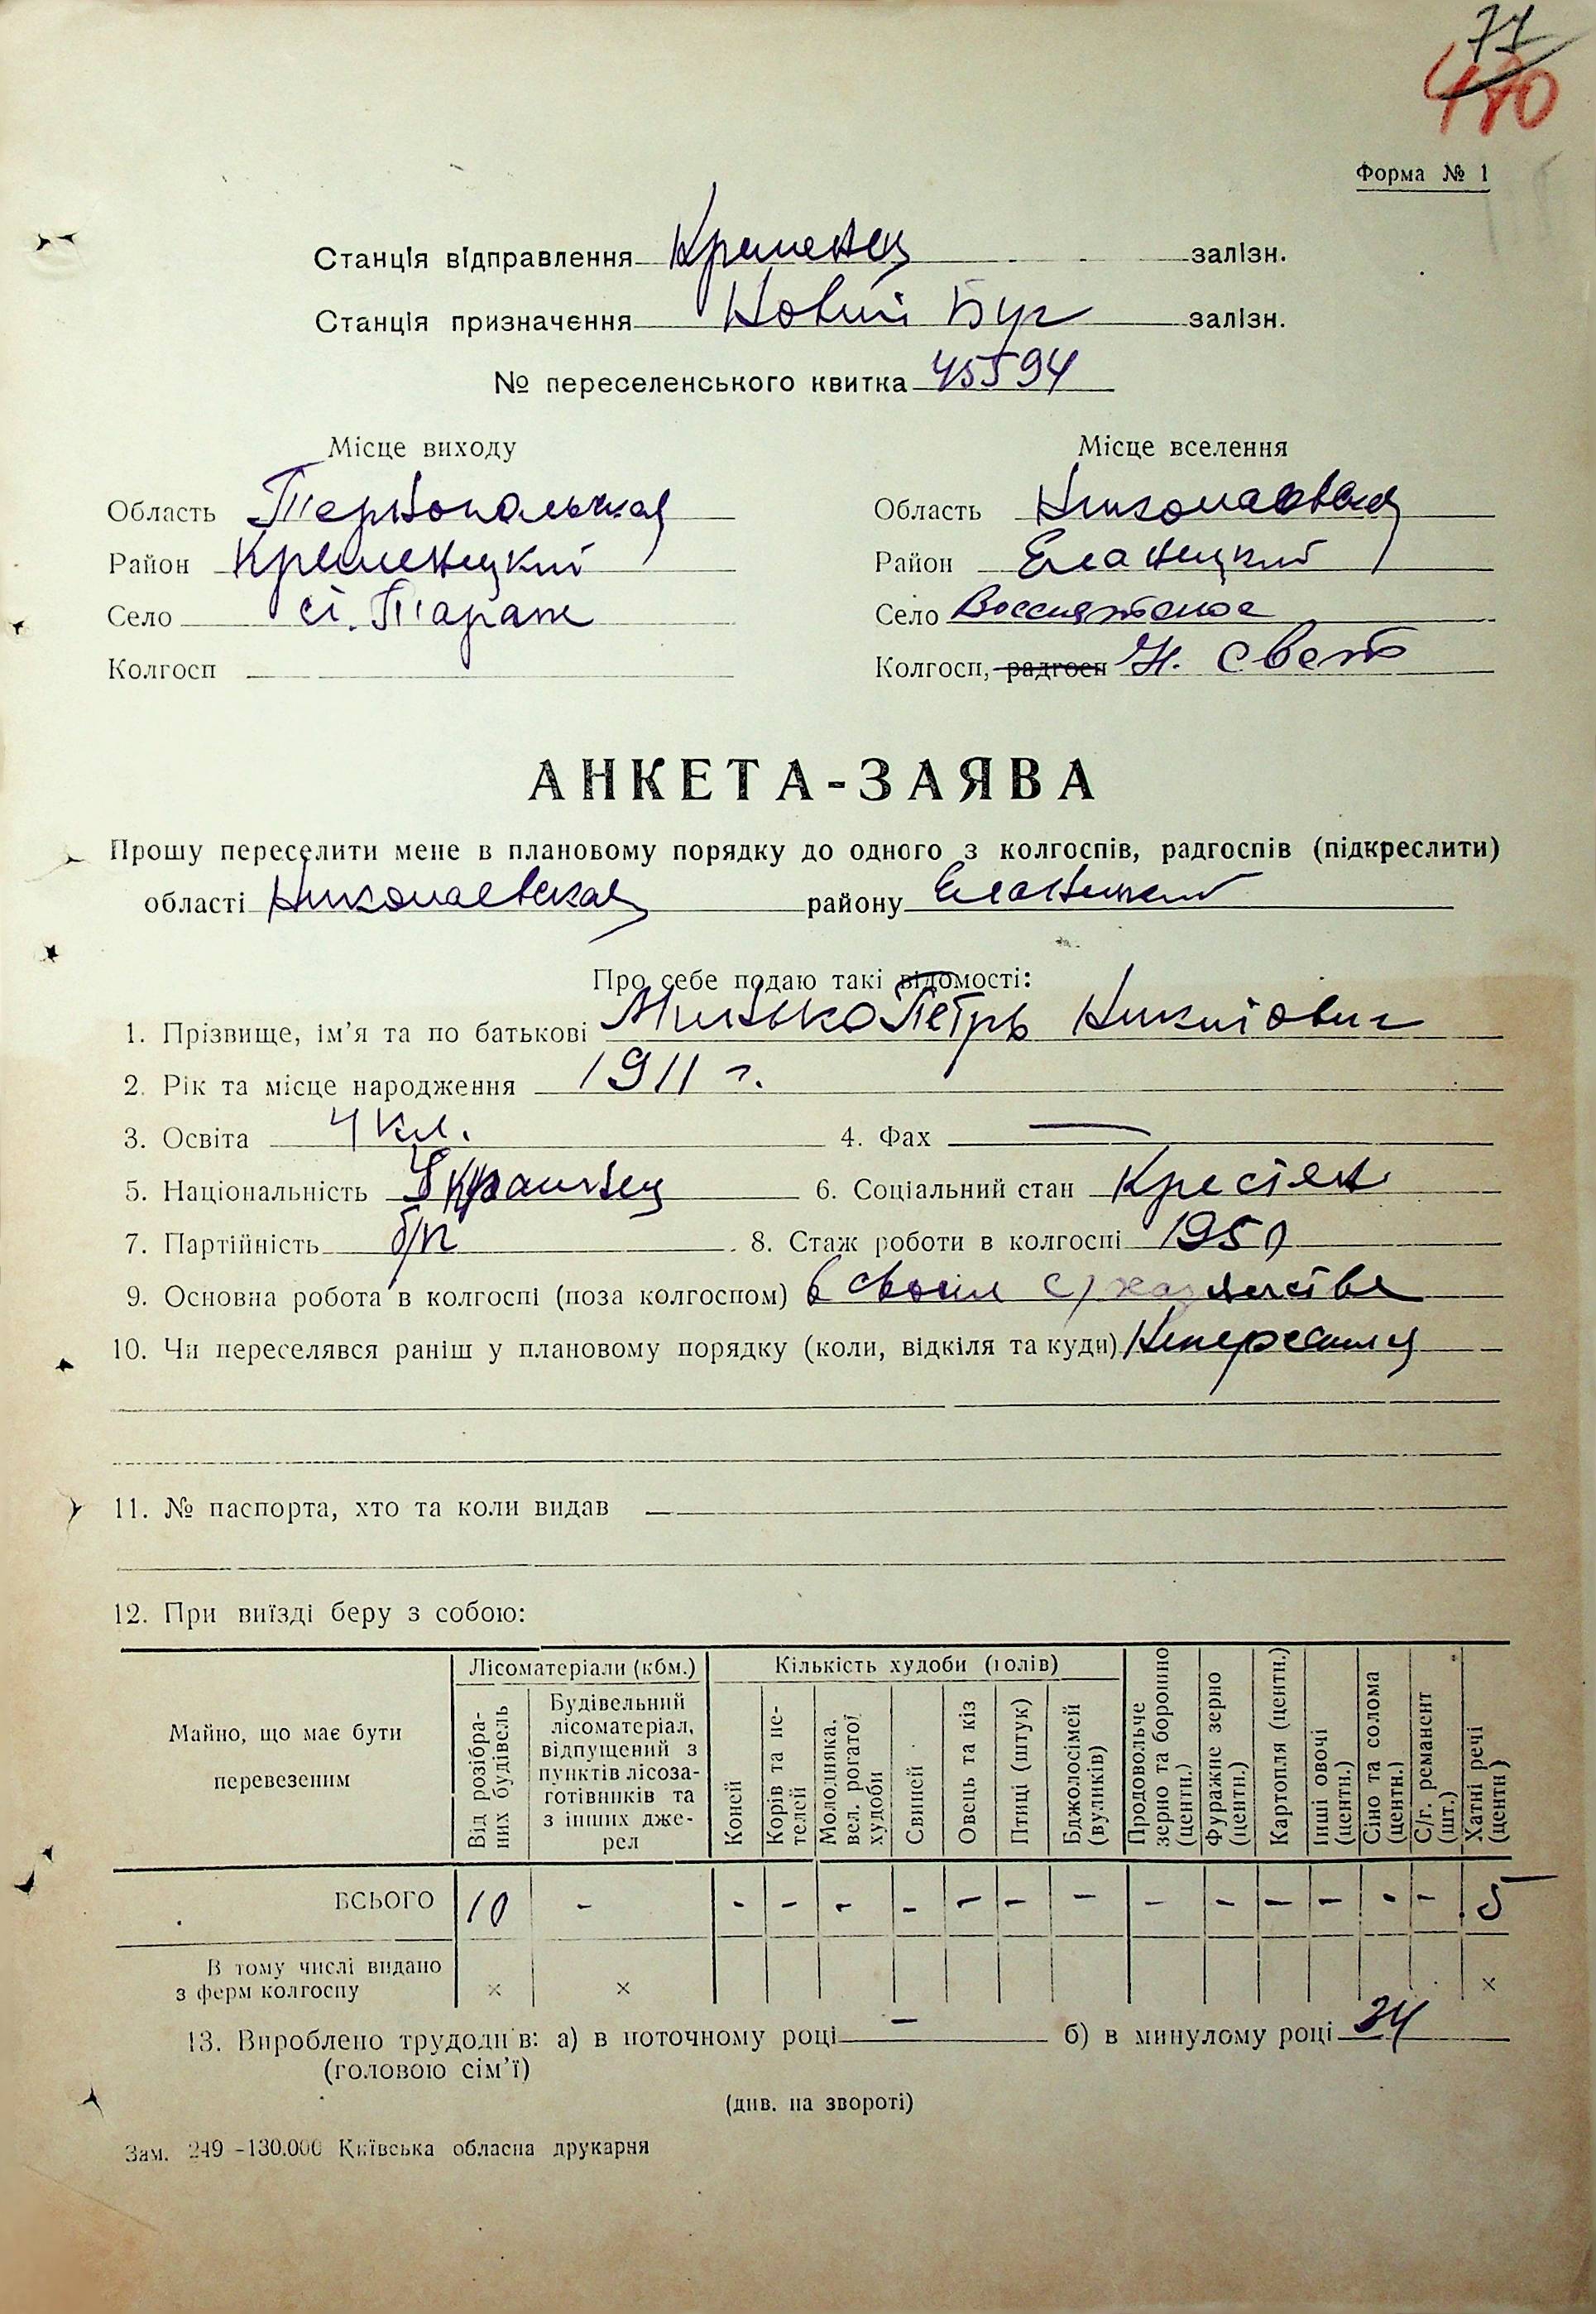 71
470
Форма № 1
Станція відправлення Кременец залізн.
Станція призначення Новий Буг залізн.
№ переселенського квитка 45594
Місце виходу Місце вселення
Область Тернопольская Область Николаевская
Район Кременецкий Район Еланецкий
Село с. Тараж Село Воссиятское
Колгосп Колгосп, радгосп Н. Свет
АНКЕТА-ЗАЯВА
Прошу переселити мене в плановому порядку до одного з колгоспів, радгоспів (підкреслити)
області Николаевская району Еланецкий
Про себе подаю такі відомості:
1. Прізвище, ім'я та по батькові Минько Петрь Никитович
2. Рік та місце народження 1911 г.
3. Освіта 4 кл. 4. Фах —
5. Національність Украинец 6. Соціальний стан Крестян
7. Партійність б/п 8. Стаж роботи в колгоспі 1950
9. Основна робота в колгоспі (поза колгоспом) в своим с/хазяистве
10. Чи переселявся раніш у плановому порядку (коли, відкіля та куди)
11. № паспорта, хто та коли видав
12. При виїзді беру з собою:
Майно, що має бути перевезеним
Лісоматеріали (кбм.)
Від розібраних будівель
Будівельний лісоматеріал, відпущений з пунктів лісозаготівників та з інших джерел
Кількість худоби (голів)
Коней
Корів та нетелей
Молодняка, вел. рогатої худоби
Свиней
Овець та кіз
Птиці (штук)
Бджолосімей (вуликів)
Продовольче зерно та борошно (центн.)
Фуражне зерно (центн.)
Картопля (центн.)
Інші овочі (центн.)
Сіно та солома (центн.)
С/г. реманент (шт.)
Хатні речі (центн)
ВСЬОГО 10 - - - - - - - - - - - - - - 5
В тому числі видано
з ферм колгоспу × × ×
13. Вироблено трудоднів: а) в поточному році — б) в минулому році 34
(головою сім'ї)
(див. на звороті)
Зам. 249 -130.000 Київська обласна друкарня